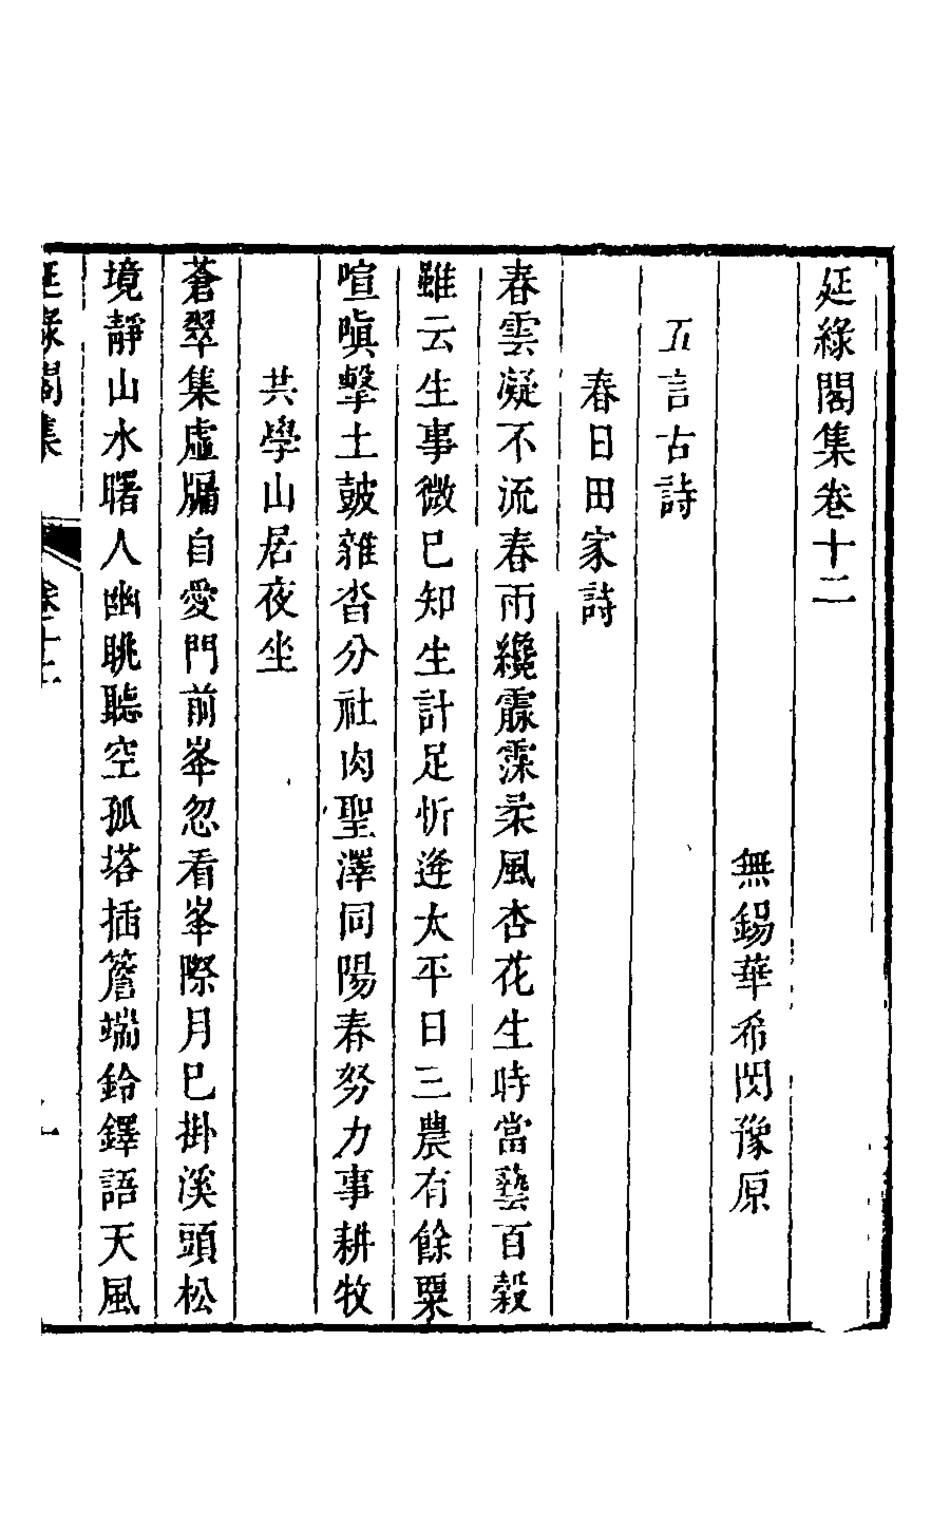 延綠閣集卷十二
無錫華希閔豫原
五言古詩
春日田家詩
春雲凝不流春雨纔霡霂柔風杏花生時當藝百穀
雖云生事微已知生計足忻逢太平日三農有餘粟
喧嗔擊土鼓雜沓分社肉聖澤同陽春努力事耕牧
共學山居夜坐
蒼翠集虛牖自愛門前峯忽看峯際月已掛溪頭松
境靜山水曙人幽眺聽空孤塔插簷端鈴鐸語天風
延綠閣集
卷十二
一